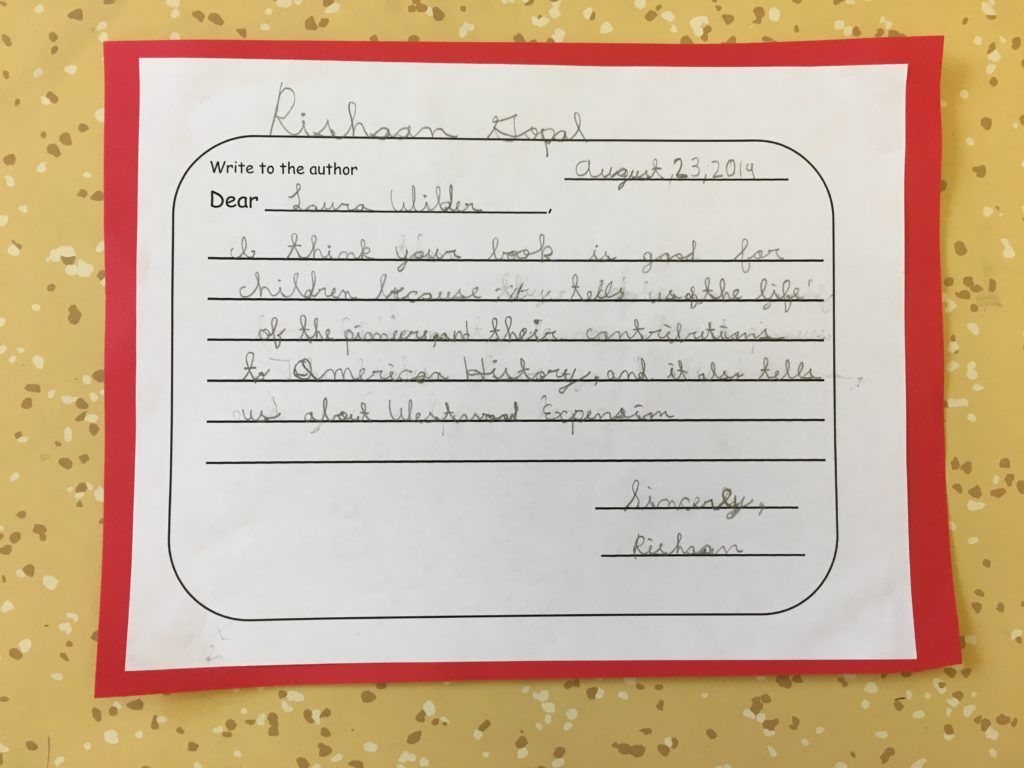 Rishaan Gopal
Write to the author
August, 23, 2014
Dear Laura Wilder,
I think your book is good for
children because it tells us of the life
of the pioneers, and their contributions
to American History, and it also tells
us about Westward Expension
Sincerly,
Rishaan